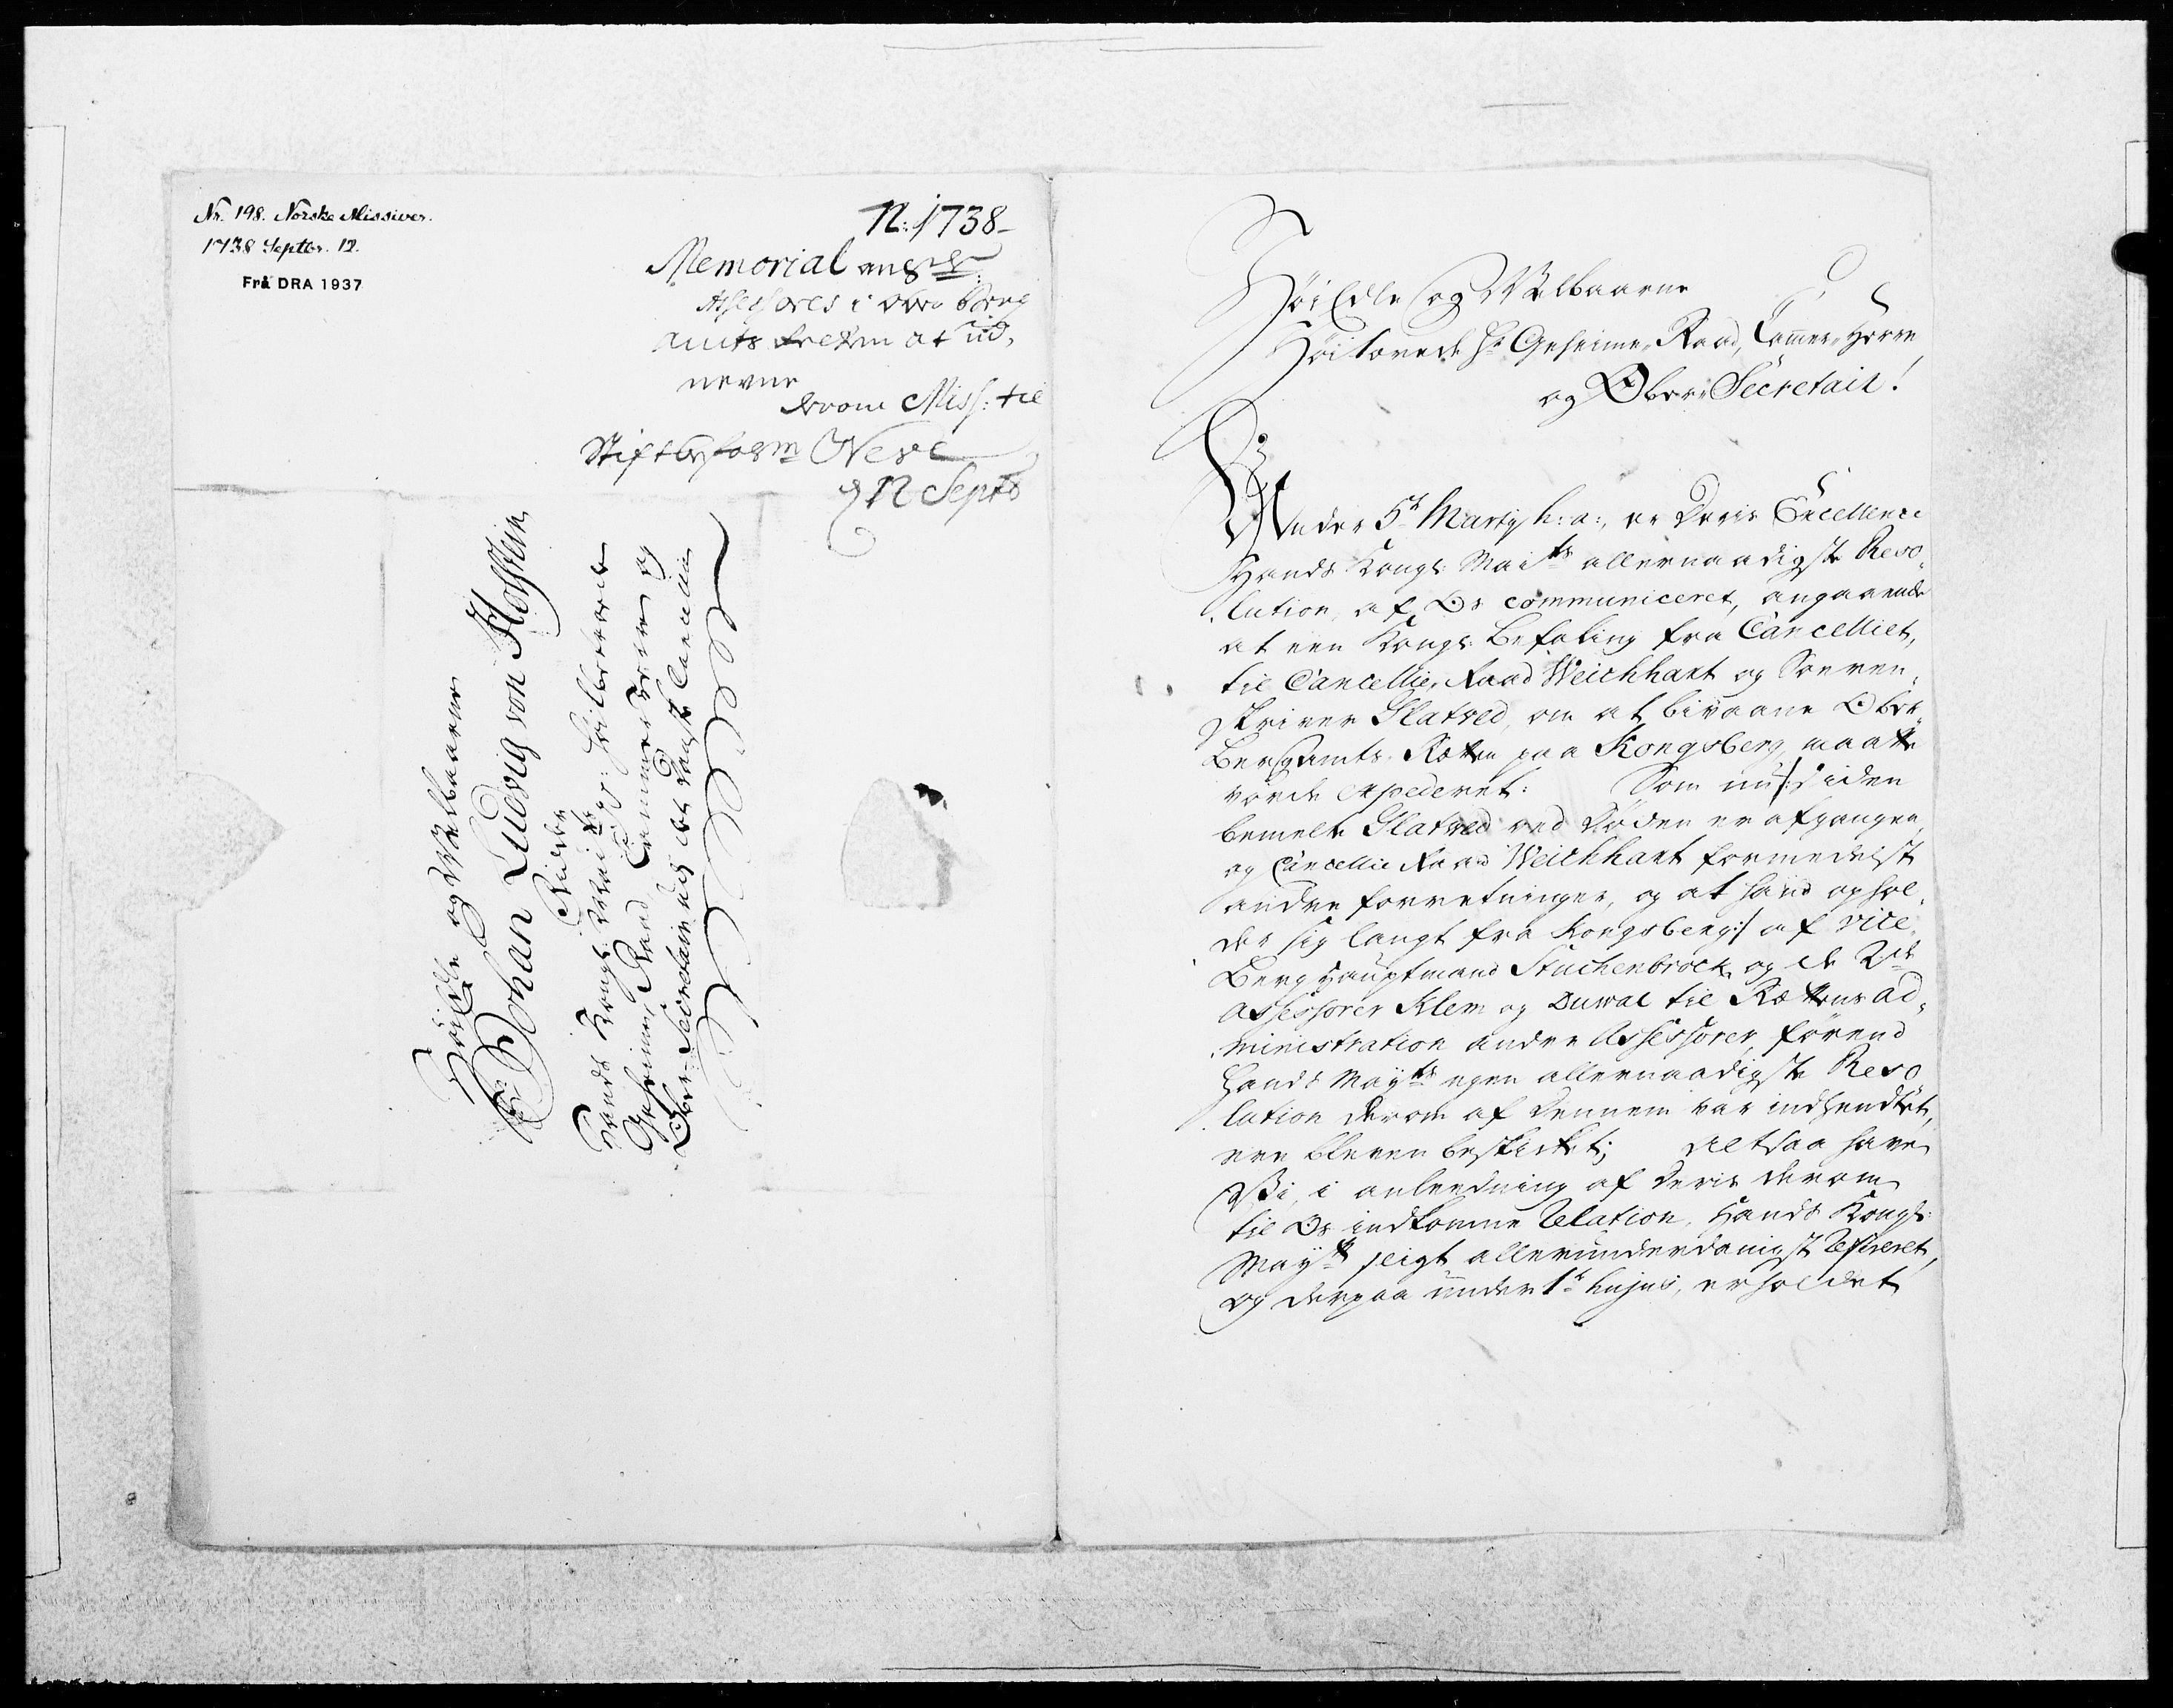 Nr. 198. Norske Missiver.
1738 Septbr. 12.
Frå DRA 1937
N: 1738
Memorial ang:
Assessores i Ober Berg
amts Retten at ud,
nevne
hvorom Miss: til
Stiftbef.m Nese
d 12 Sept
HöiEdle og Velbaarne
Hr. Johan Ludvig von Holstein
Ridder
Hands Kongl: Mai:ts Höibetroede
Geheime Raad Cammer Herre og
Ober-Secretair ved det danske Cancellie
HöiEdle og Velbaarne
Höitærede Hr. Geheime Raad, Cammer-Herre
og Ober-Secretair!
Under 5te Martij h: a:, er Deris Excellence
Hands Kongl: Mai:ts allernaadigste Reso-
lution, af Os communiceret, angaaende
at een Kongl: Befaling fra Cancelliet,
til Cancellie Raad Weichhart og Soren-
skriver Glatved, om at bivaane Ober-
BergAmts Retten paa Kongsberg, maatte
vorde expederet: Som nu /: siden
bemelte Glatved ved Döden er afgangen,
og Cancellie Raad Weichhart formedelst
andre forretninger, og at hand ophol-
der sig langt fra Kongsberg :/ af Vice
Berg Hauptmand Stuchenbrock og de 2de
Assessorer Klem og Duwal til Rettens ad-
ministration andre Assessorer, förend
Hands May:ts egen allernaadigste Reso
lution derom af dennem var indhendtet,
ere bleven beskicket; Altsaa have
Vi, i anleedning af deris derom
til Os indkomne Relation, Hands Kongl:
May:t sligt allerunderdanigst refereret,
og derpaa under 1te hujus, erholdet